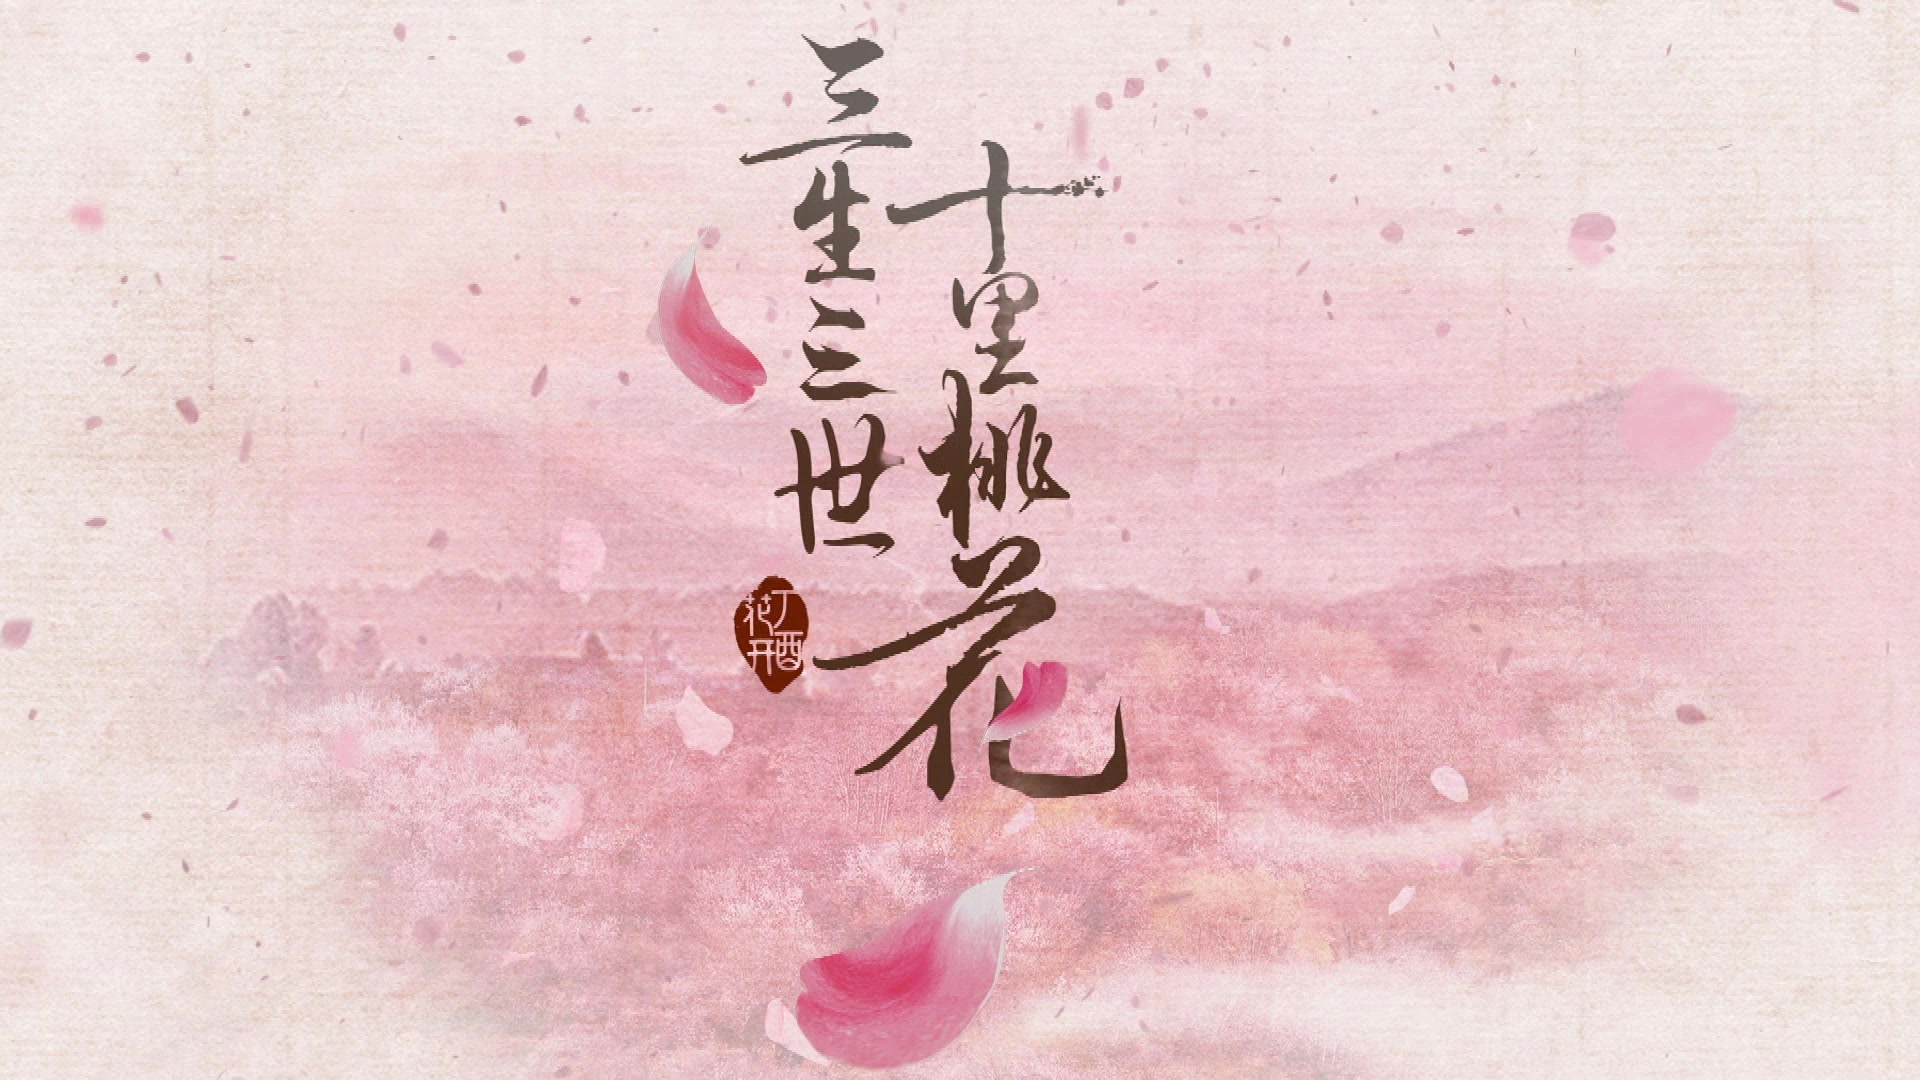 三生三世
十里桃花
丁酉
花开